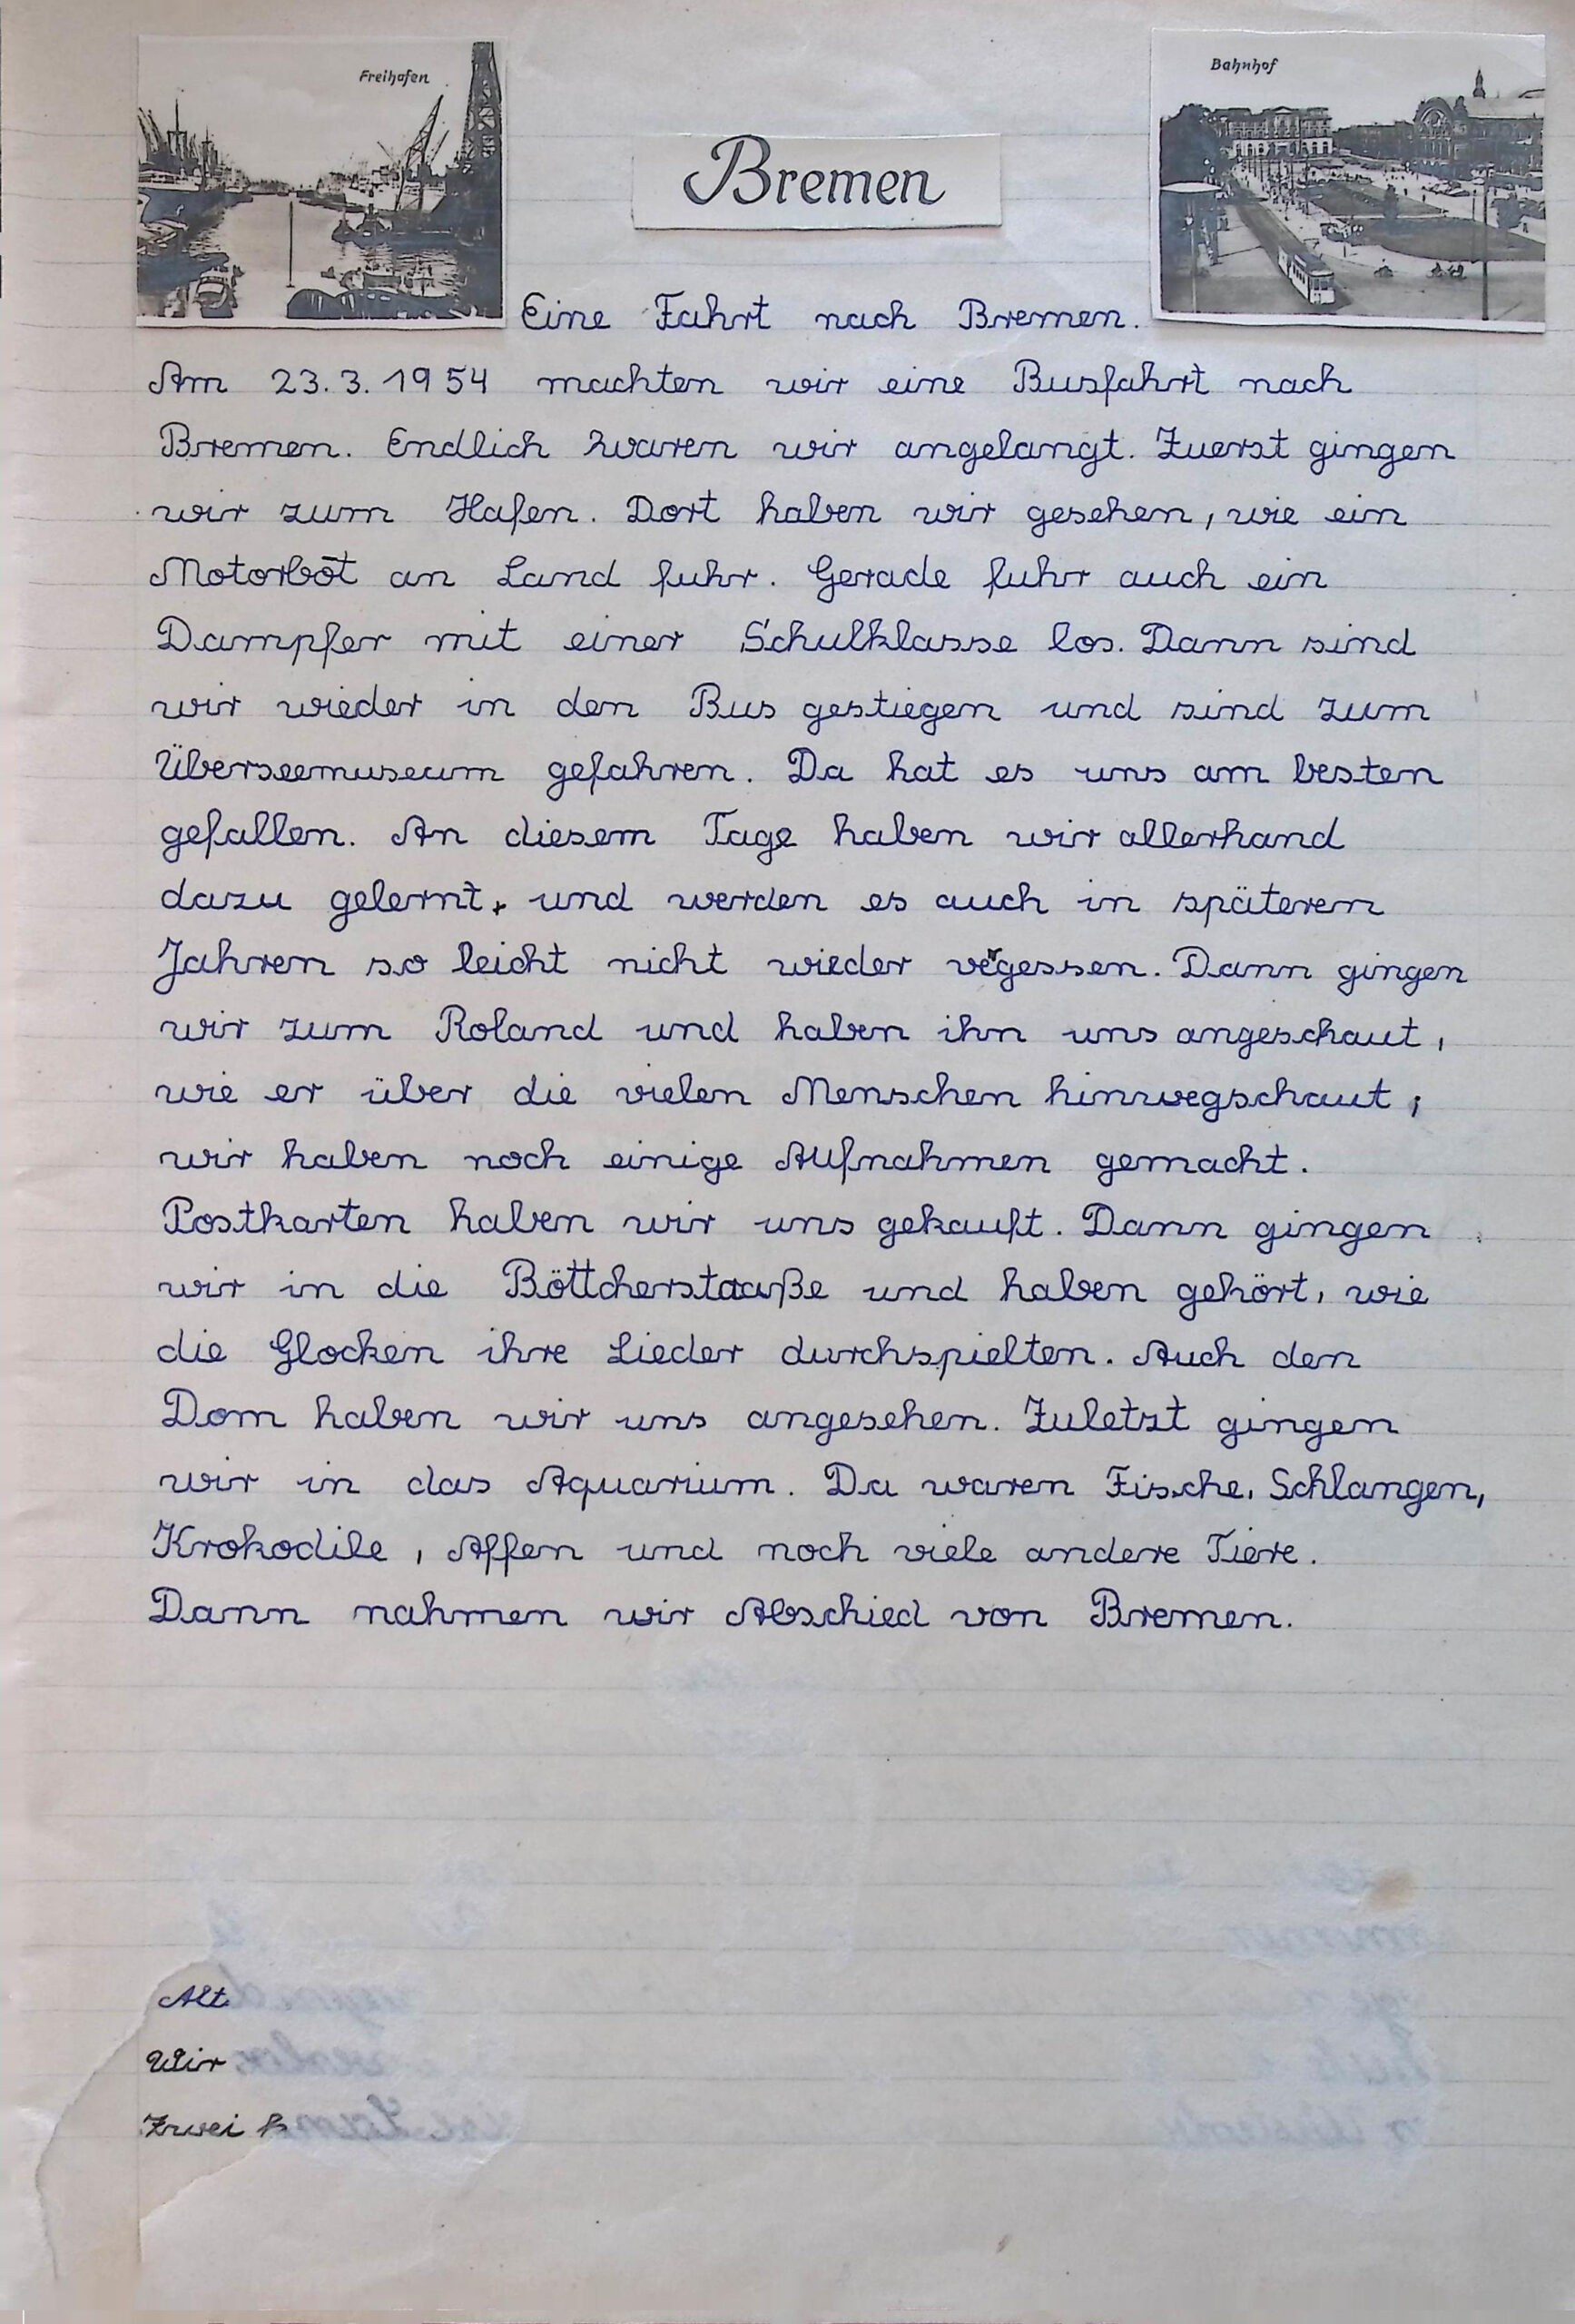 Freihafen
Bahnhof
Bremen
Eine Fahrt nach Bremen.
Am 23.3.1954 machten wir eine Busfahrt nach
Bremen. Endlich waren wir angelangt. Zuerst gingen
wir zum Hafen. Dort haben wir gesehen, wie ein
Motorbōt an Land fuhr. Gerade fuhr auch ein
Dampfer mit einer Schulklasse los. Dann sind
wir wieder in den Bus gestiegen und sind zum
Überseemuseum gefahren. Da hat es uns am besten
gefallen. An diesem Tage haben wir allerhand
dazu gelernt, und werden es auch in späteren
Jahren so leicht nicht wieder vergessen. Dann gingen
wir zum Roland und haben ihn uns angeschaut,
wie er über die vielen Menschen hinwegschaut;
wir haben noch einige Aufnahmen gemacht.
Postkarten haben wir uns gekauft. Dann gingen
wir in die Böttcherstaaße und haben gehört, wie
die Glocken ihre Lieder durchspielten. Auch den
Dom haben wir uns angesehen. Zuletzt gingen
wir in das Aquarium. Da waren Fische, Schlangen,
Krokodile, Affen und noch viele andere Tiere.
Dann nahmen wir Abschied von Bremen.
Alt
Wir
Zwei